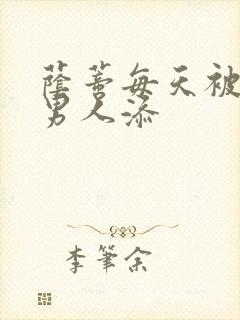 蔭蒂每天被
男人添
李筆余